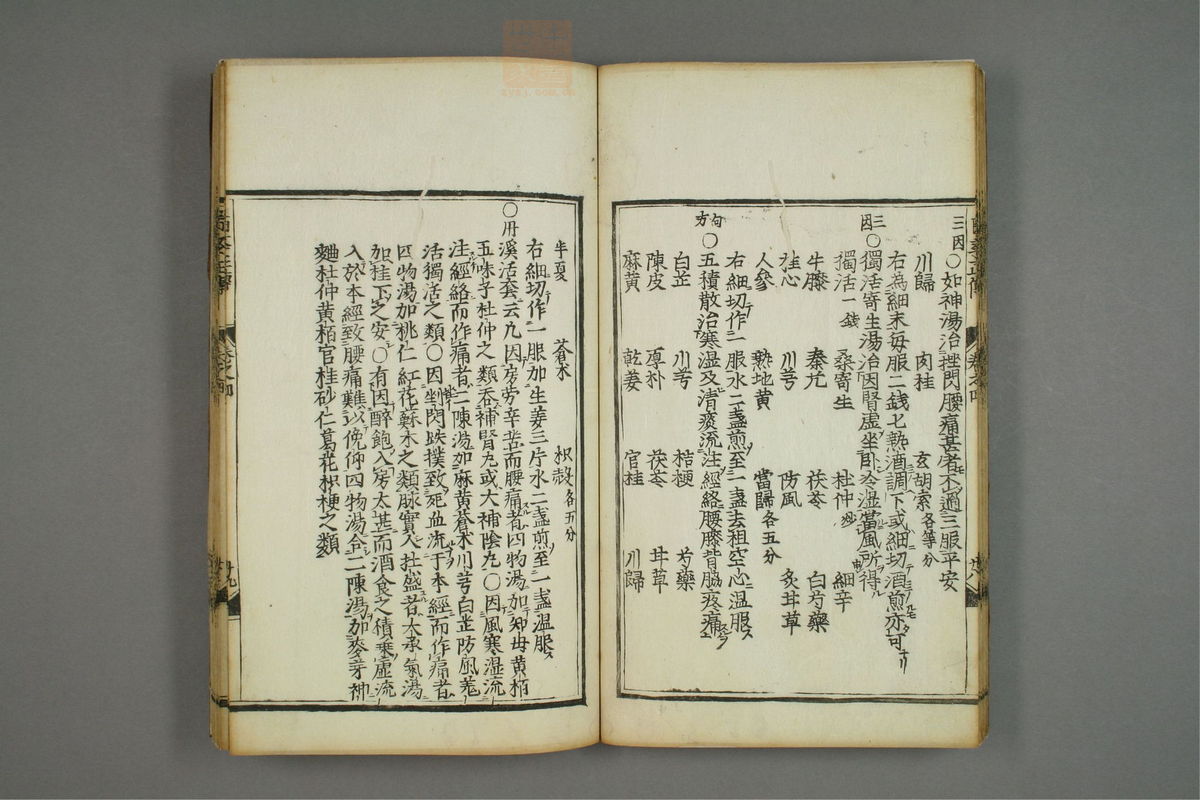 三因○如神湯治挫閃腰痛甚者不過三服平安
川歸 肉桂 玄胡索各等分
右為細末每服二錢七熱酒調下或細切酒煎亦可
三因○獨活寄生湯治因腎虛坐卧冷湿當風所得
獨活一錢 桑寄生 杜仲炒 細辛
牛膝 秦艽 茯苓 白芍藥
桂心 川芎 防風 炙甘草
人參 熟地黃 當歸各五分
右細切作一服水二盞煎至一盞去粗空心温服
局方○五積散治寒湿及清痰流注經絡腰膝背脇疼痛
白芷 川芎 桔梗 芍藥
陳皮 厚朴 茯苓 甘草
麻黄 乾姜 官桂 川歸
半夏 蒼朮 枳殼各五分
右細切作一服加生姜三片水二盞煎至一盞温服
○丹溪活套云凡因房劳辛苦而腰痛者四物湯加知母黄栢
五味子杜仲之類吞補腎丸或大補陰丸○因風寒湿流
注經絡而作痛者二陳湯加麻黄蒼朮川芎白芷防風羗
活獨活之類○因剉閃跌撲致死血流于本經而作痛者
四物湯加桃仁紅花蘇木之類脉實人壯盛者大承氣湯
加桂下之安○有因醉飽入房太甚而酒食之積乗虛流
入於本經致腰痛難以俛仰四物湯合二陳湯加麥芽神
麯杜仲黄栢官桂砂仁葛花枳梗之類
卷之四
廿八
廿九